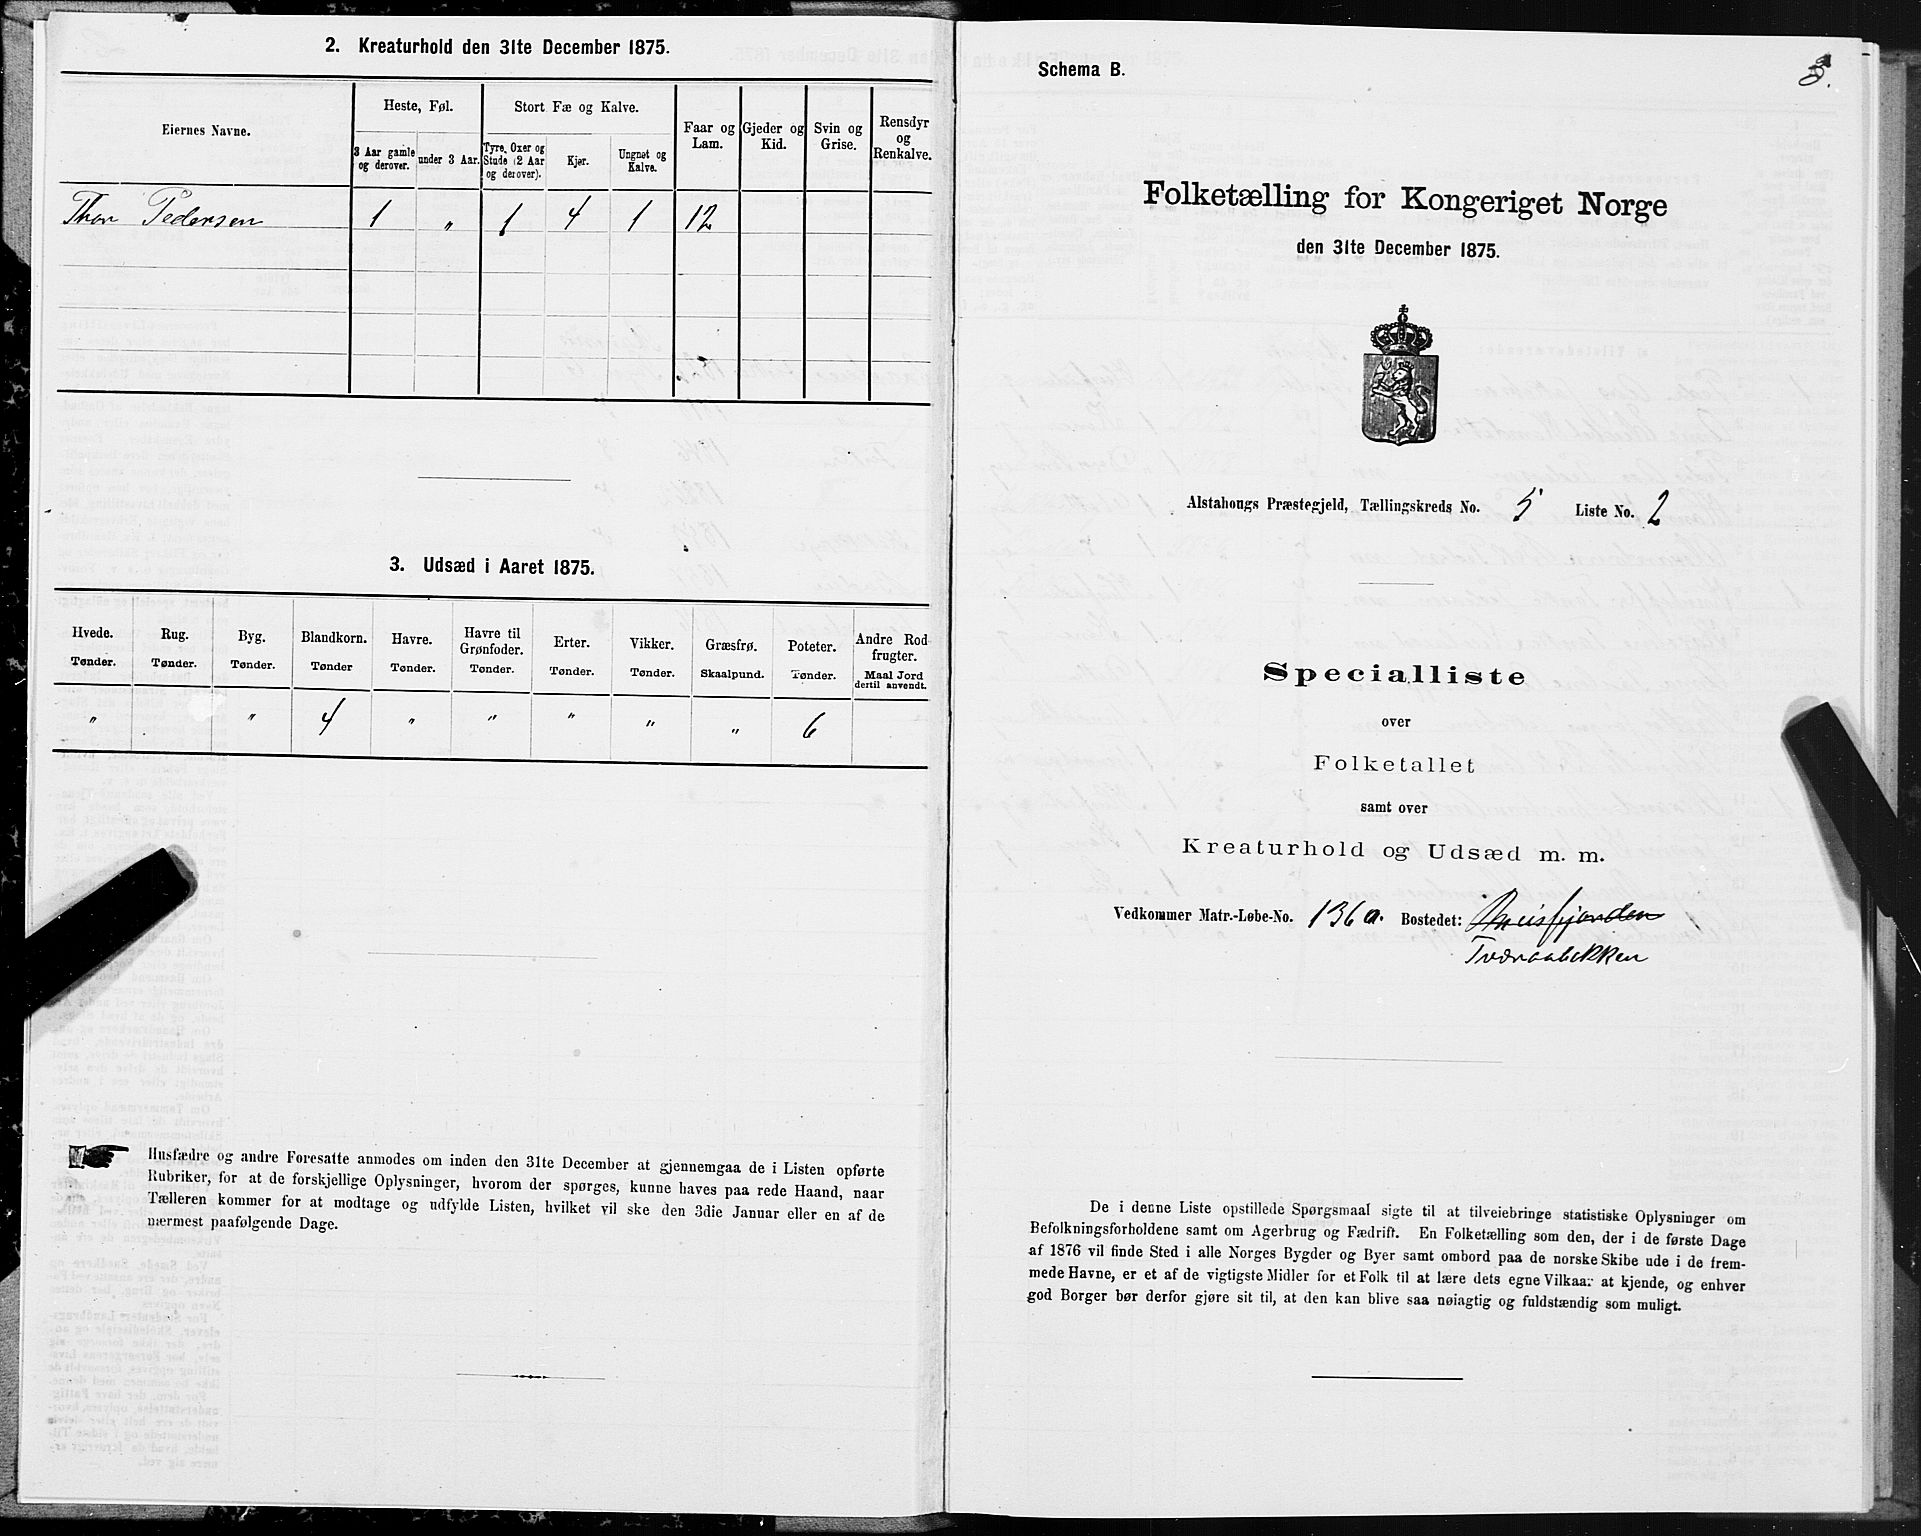 2. Kreaturhold den 31te December 1875.
Eiernes Navne.
Heste, Føl.
Stort Fæ og Kalve.
Faar og Lam.
Gjeder og Kid.
Svin og Grise.
Rensdyr og Renkalve.
3 Aar gamle og derover.
under 3 Aar.
Tyre, Oxer og Stude (2 Aar og derover).
Kjør.
Ungnøt og Kalve.
Thor Pedersen 1 " 1 4 1 12
3. Udsæd i Aaret 1875.
Hvede. Tønder.
Rug. Tønder.
Byg. Tønder.
Blandkorn. Tønder
Havre. Tønder.
Havre til Grønfoder. Tønder.
Erter. Tønder.
Vikker. Tønder.
Græsfrø. Skaalpund.
Poteter. Tønder.
Andre Rodfrugter. Maal Jord dertil anvendt.
" " 4 " " " " " 6
Husfædre og andre Foresatte anmodes om inden den 31te December at gjennemgaa de i Listen opførte
Rubriker, for at de forskjellige Oplysninger, hvorom der spørges, kunne haves paa rede Haand, naar
Tælleren kommer for at modtage og udfylde Listen, hvilket vil ske den 3die Januar eller en af de
nærmest paafølgende Dage.
Schema B.
Folketælling for Kongeriget Norge
den 31te December 1875.
Alstahougs Præstegjeld, Tællingskreds No. 5 Liste No. 2
Specialliste
over
Folketallet
samt over
Kreaturhold og Udsæd m. m.
Vedkommer Matr.-Løbe-No. 136a. Bostedet:
Tværaabekken
De i denne Liste opstillede Spørgsmaal sigte til at tilveiebringe statistiske Oplysninger om
Befolkningsforholdene samt om Agerbrug og Fædrift. En Folketælling som den, der i de første Dage
af 1876 vil finde Sted i alle Norges Bygder og Byer samt ombord paa de norske Skibe ude i de frem-
mede Havne, er et af de vigtigste Midler for et Folk til at lære dets egne Vilkaar at kjende, og enhver
god Borger bør derfor gjøre sit til, at den kan blive saa nøiagtig og fuldstændig som muligt.